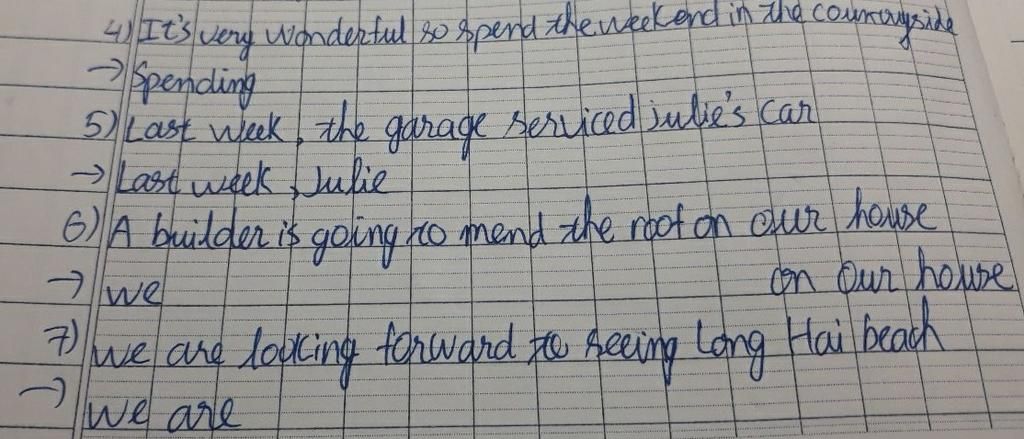 4) It's very wonderful to spend the weekend in the countryside
→ Spending
5) Last week, the garage serviced julie's car
→ Last week, Julie
6) A builder is going to mend the roof on our house
→ we on our house
7) we are looking forward to seeing Long Hai beach
→ we are